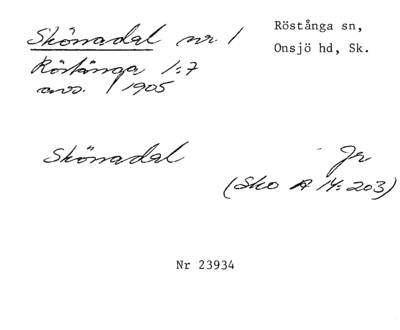 Skönadal nr 1
Röstånga sn,
Onsjö hd, Sk.
Röstånga 1:7
avs. 1905
Skönadal Jr
(Sko A 14:203)
Nr 23934